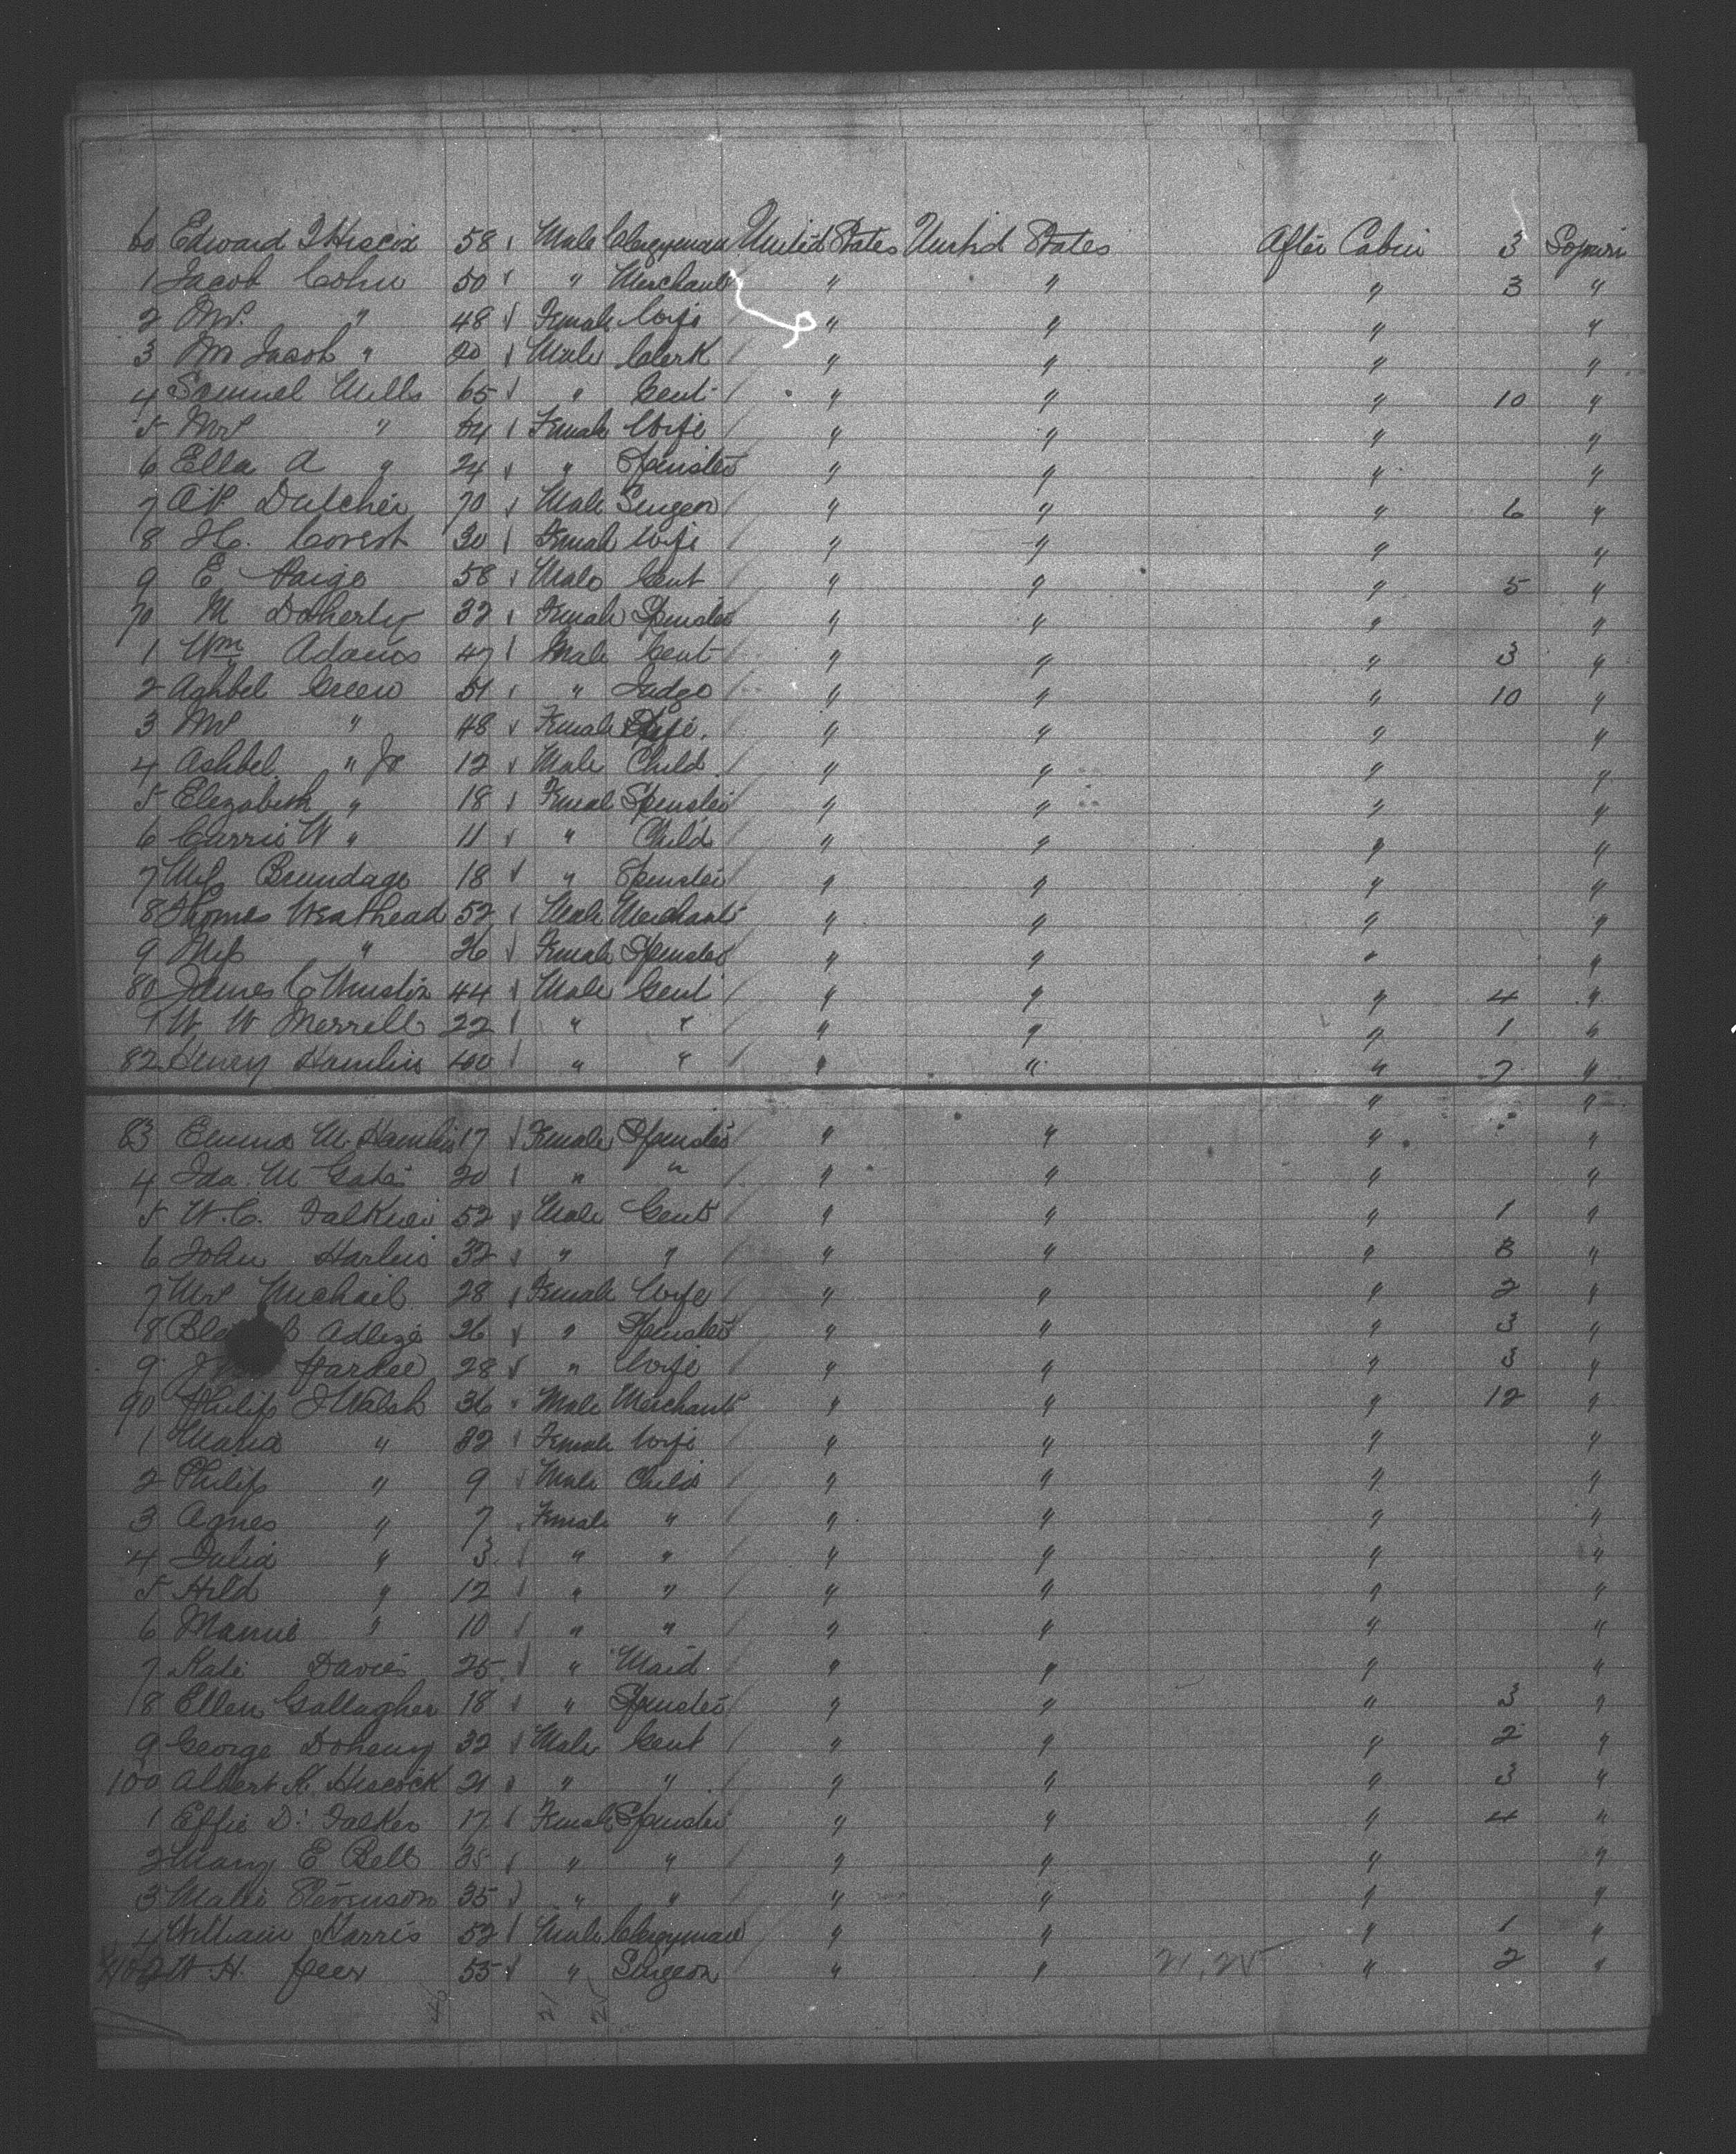 60 Edward T Hiscox 58 Male Clergyman United States United States After Cabin 3 Sojourn
1 Jacob Cohn 50 " Merchant " " " 3 "
2 Mrs. " 48 Female Wife " " " "
3 Jacob " 20 Male Clerk " " " "
4 Samuel Mills 65 " Gent " " " 10 "
5 Mrs " 64 Female Wife " " " "
6 Ella A " 24 " Spinster " " " "
7 A.P. Dutcher 70 Male Surgeon " " " 6 "
8 H. Covert 30 Female Wife " " " "
9 E Paige 58 Male Gent " " " 5 "
70 M Doherty 32 Female Spinster " " " "
1 Wm Adams 47 Male Gent " " " 3 "
2 Ashbel Green 51 " Judge " " " 10 "
3 Mrs " 48 Female Wife. " " " "
4 Ashbel " Jr 12 Male Child " " " "
5 Elizabeth " 18 Female Spinster " " " "
6 Carrie W " 11 " Child " " " "
7 Miss Brundage 18 " Spinster " " " "
8 Thomas Weathead 52 Male Merchant " " " "
9 Miss " 26 Female Spinster " " " "
80 James C 44 Male Gent " " " 4 "
1 W W Merrell 22 " " " " " 1 "
82 Henry Hamlin 40 " " " " " 7 "
" "
83 Emma M. Hamlin 17 Female Spinster " " " "
4 Ida M Gates 20 " " " " " "
5 W.C. Falkner 52 Male Gent " " " 1 "
6 John Harlin 32 " " " " " 3 "
7 Mrs Michail 28 Female Wife " " " 2 "
8 26 " Spinster " " " 3 "
9 Hardee 28 " Wife " " " 3 "
90 Philip J Walsh 36 Male Merchant " " " 12 "
1 Maria " 32 Female Wife " " " "
2 Philip " 9 Male Child " " " "
3 Agnes " 7 Female " " " " "
4 Julia " 3 " " " " " "
5 Hild " 12 " " " " " "
6 Mamie " 10 " " " " " "
7 Kate Davies 25 " Maid " " " "
8 Ellen Gallagher 18 " Spinster " " " 3 "
9 George Doheny 32 Male Gent " " " 2 "
100 Albert K. Hiscock 21 " " " " " 3 "
1 Effie D. Falker 17 Female Spinster " " " 4 "
2 Mary E Bell 35 " " " " " "
3 Stevenson 35 " " " " " "
4 William Harris 52 Male Clergyman " " " 1 "
W. H. Geer 55 " Surgeon " " 21.25 " 2 "